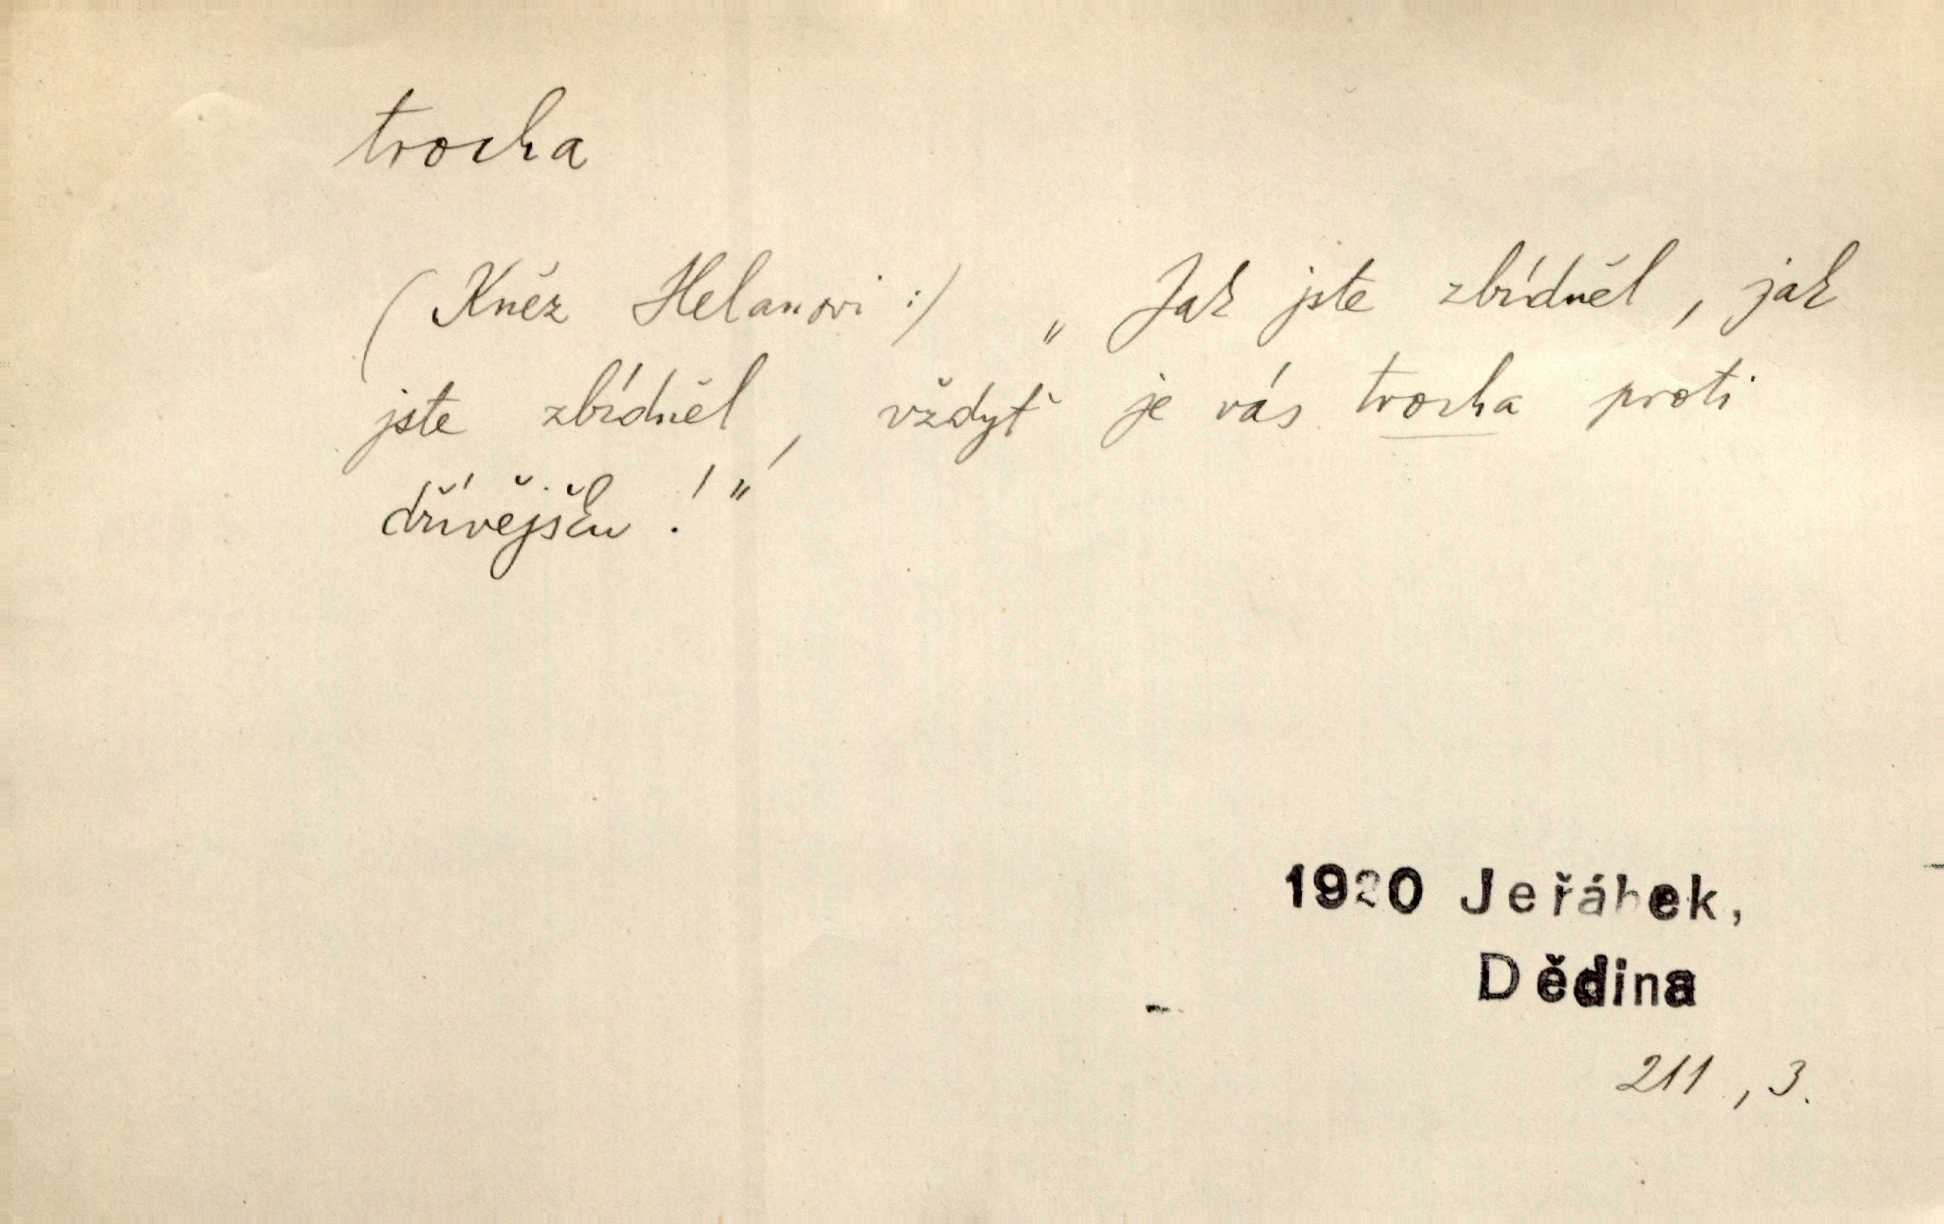 trocha
(Kněz Helanovi:) „Jak jste zbídněl, jak
jste zbídněl, vždyť je vás trocha proti
dřívějšku!"
1920 Jeřábek,
Dědina
211, 3.